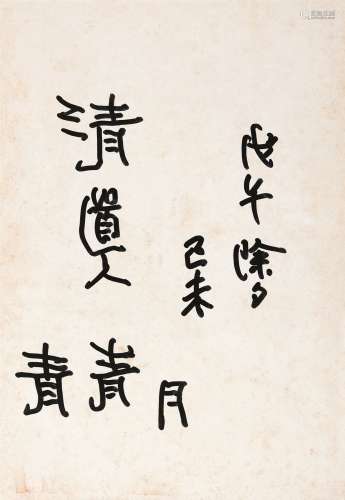 戊午除夕
己未
清道人
青青月